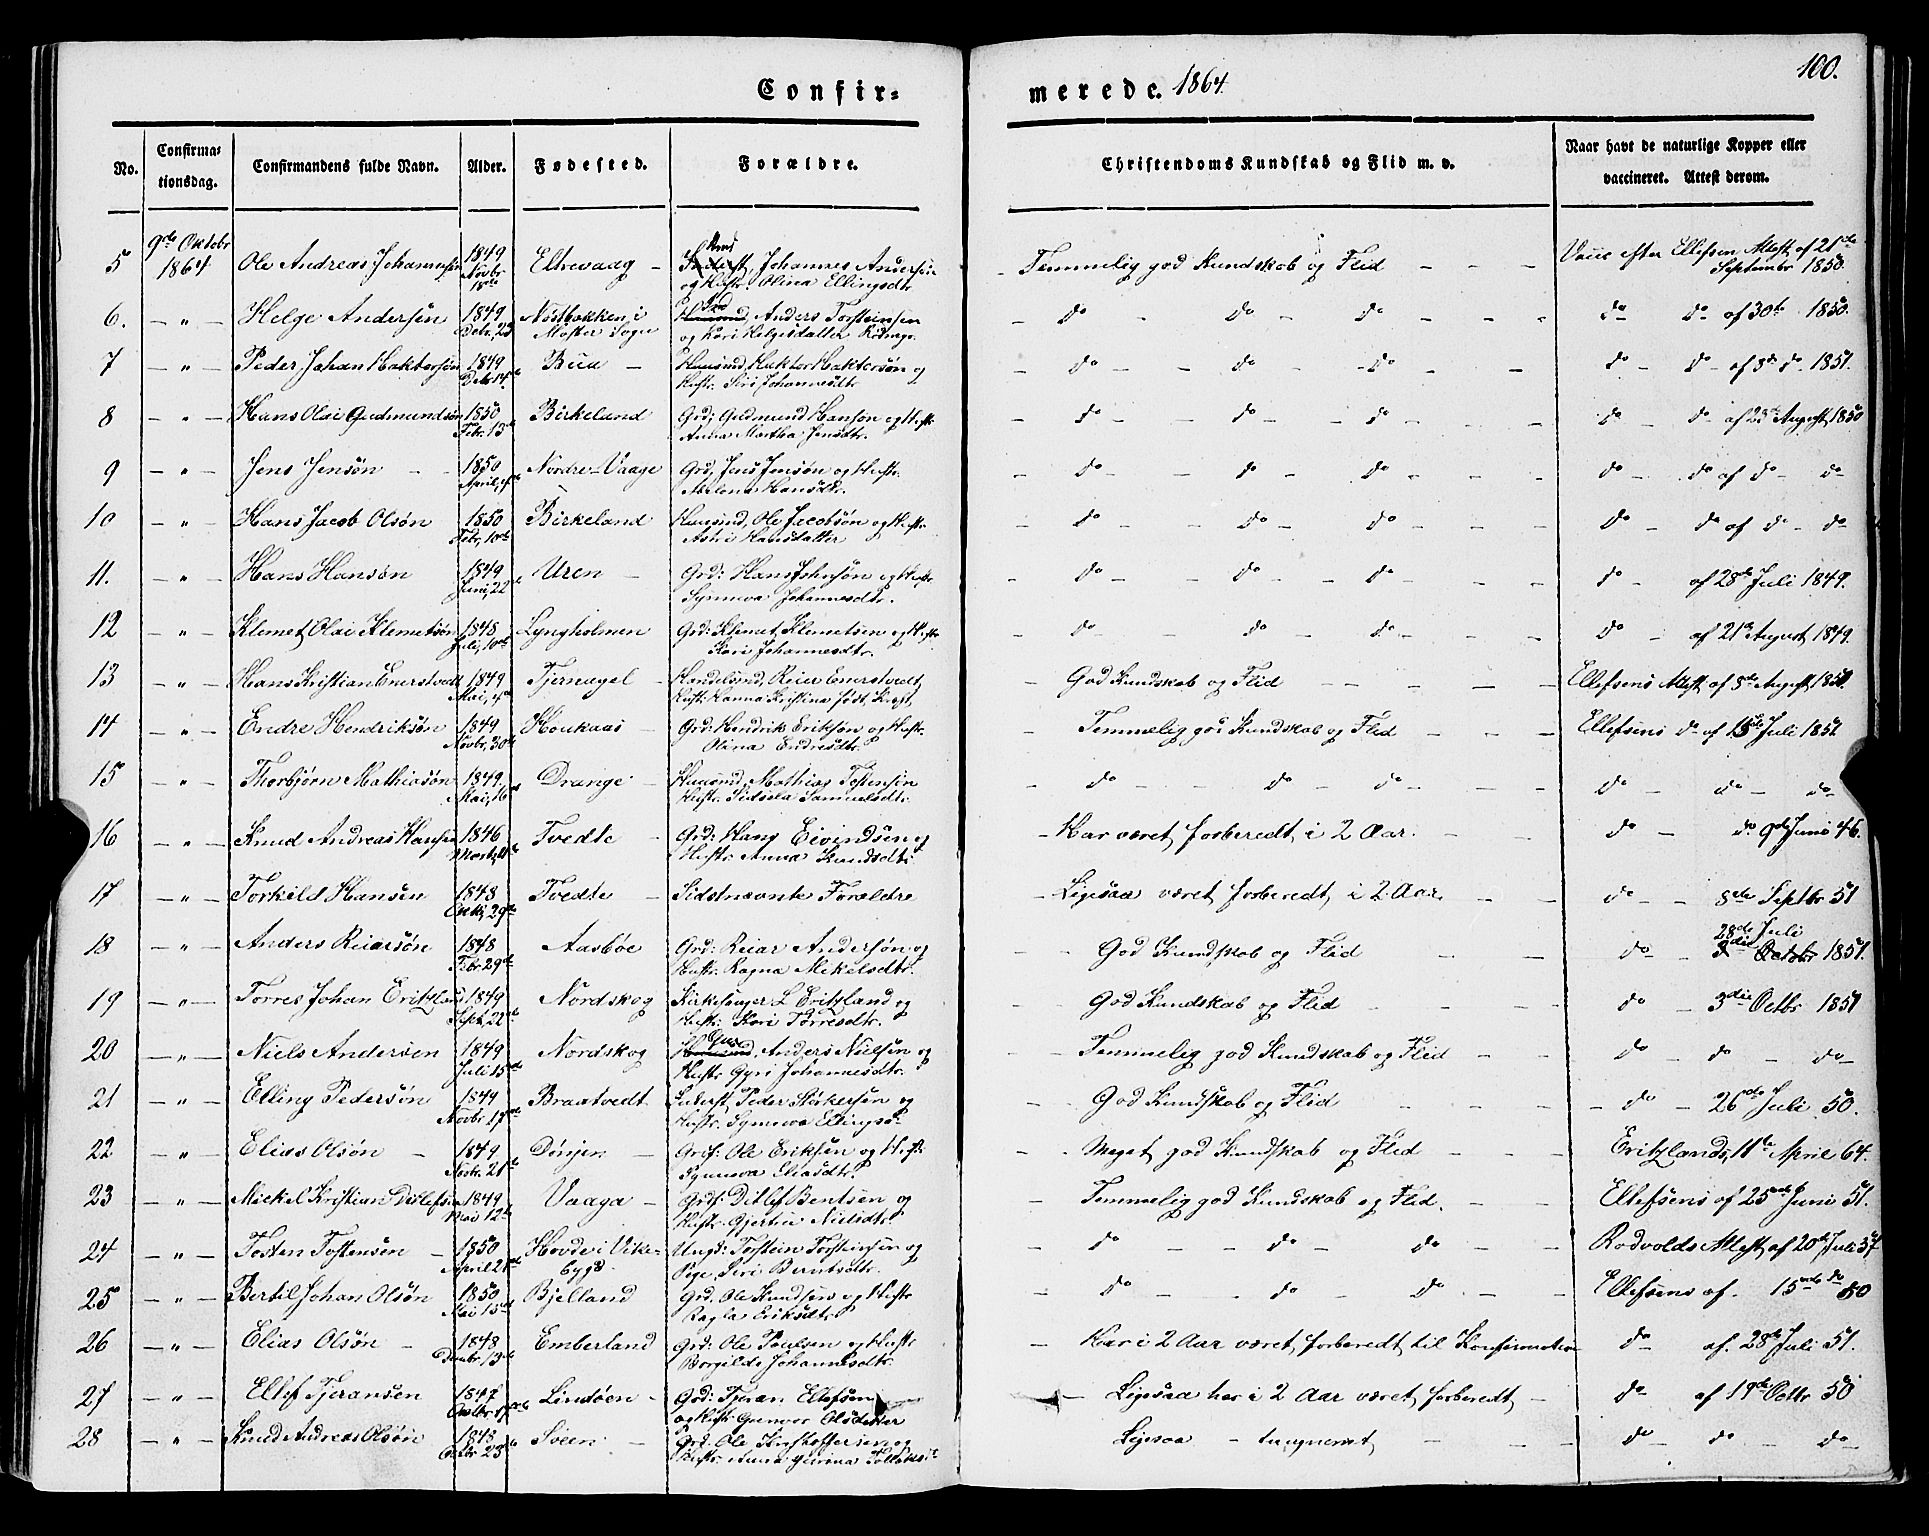 100.
Confir-
merede. 1864.
No.
Confirma-
tionsdag.
Confirmandens fulde Navn.
Alder.
Fødested.
Forældre.
Christendoms Kundskab og Flid m. v.
Naar havt de naturlige Kopper eller
vaccineret. Attest derom.
5 9de Oktobr 1864 Ole Andreas Johannesøn 1849 Novbr 18de Eltrevaag - Johannes Andersøn
og Hustr. Olina Ellingsdtr. - Temmelig god Kundskab og Flid - - - Vacc efter Ellefsens Attest af 21de
Septembr 1850.
6. - " - Helge Andersøn 1849 Decbr. 23 Nøstbakken i
Moster Sogn Anders Torsteinsen
og Kari Helgesdatter - do - do - do - - - do do af 30te 1850.
7 - " - Peder Johan Haktorsøn 1849 Decbr 14de Bua - Huusmd, Haktor Haktorsøn og
Hustr. Siri Johannesdtr - do - do - do - - - do - do - af 8de do. 1851.
8 - " - Hans Olai Gudmundsøn 1850 Febr. 13de Birkeland Grd; Gudmund Hansøn og Hustr
Anna Martha Jensdtr. - do - do - do - - - do - do af 23de August 1850
9 - " - Jens Jensøn - - 1850 April, Nordre-Vaage Grd, Jens Jensøn og Hustr.
Abelona Hansdtr. - do - do - do - - - do - do af do - do
10 - " - Hans Jacob Olsøn 1850 Febr, 10de Birkeland Huusmd, Ole Jacobsøn og Hustr
Astri Hansdatter - do - do - do - - - do - do af do - do
11. - " - Hans Hansøn 1849 Juni, 22de Uren - Grd: Hans og Hustr
Synneva Johannesdtr. - do - do - do - - - do - af 28de Juli 1849.
12 - " - Klemet Olai Klemetsøn 1848 Juli, 10de Lyngholmen Grd: Klemet Klemetsen og Hustr
Kari Johannesdtr. - do - do - do - - - do - af 21de August 1849.
13 - " - Hans Kristian Enerstvedt 1849 Mai, Tjernagel - Handelsmd, Reier Enerstvedt,
Hustr. Hanna Kristina født - God Kundskab og Flid - - - - Ellefsens Attest af 8de August 1850.
14 - " - Endre Hendriksøn 1849 Novbr, 30te Houkaas - Grd: Hendrik Eriksøn og Hustr.
Olina Endresdtr. - Temmelig god Kundskab og Flid - - - Ellefsens do af 15de Juli 1851
15 - " - Thorbjørn Mathiasøn 1849. Mai, 16de Drange - Huusmd, Mathias Tostensøn
Hustr. Sidsela Samuelsdtr. - do - do - do - - - do - do - do
16 - " - Knud Andreas Hansen 1846 Marts, Tvedte - Grd: Hans Eivindsen og
Hustr. Anna Knudsdtr. - Har været forberedt i 2 Aar. - - do - do 9de Juni 46.
17 - " - Torkild Hansen 1848 29de Tvedte - Sidstnævnte Forældre - Ligesaa været forberedt i 2 Aar. - - do - - 8de Septbr 51
18 - " - Anders Reiarsøn 1848 Febr 29de Aasbøe Grd: Reiar Andersøn og
Hustr. Ragna Mikelsdtr. - God Kundskab og Flid - - do - 28de Juli
3die Octobr 1851.
19 - " - Torres Johan Eritzland 1849 Sept. 22de Nordskog Kirkesanger L Eritzland og
Hustr: Kari Torresdtr. - God Kundskab og Flid - - - do - 3die Octbr 1851
20 - " - Niels Andersen 1849 Juli 15de Nordskog Huusmd. Anders Nielsen og
Hustr. Gyri Johannesdtr. - - Temmelig god Kundskab og Flid - - do - do - do -
21 - " - Elling Pedersøn 1849 Novbr 17de Braatvedt Peder Størkersen og
Hustr. Synneva Ellingsd - - God Kundskab og Flid - - - do - 26de Juli 50.
22 - " - Elias Olsøn - 1849. Novbr. 21de Dønjen - Grd: Ole Eriksen og Hustr
Synneva Eliasdtr. - Meget god Kundskab og Flid - - Eritzlands, 11te April 64.
23 - " - Mickel Kristian Ditlefsen 1849 Mai 12te Vaaga - Grd: Ditlef Bentsen og
Hustr. Gjertru Nielsdtr. - Temmelig god Kundskab og Flid. - - Ellefsens af 25de Juni 51.
24 - " - Tosten Tostensen - 1850 April 21de Hovde i Vike-
bygd. Ungk: Torstein Torsteinsen og
Pige, Siri Berntsdtr. - do - - do - do - - Rødvolds Attest af 20de Juli 57
25 - " - Bertil Johan Olsøn 1850 Mai 15de Bjelland Grd. Ole Knudsen og Hustr
Ragla Eriksdtr. - do - - do - do - - Ellefsens af. 15de do 50
26 - " - Elias Olsøn - 1848 Decembr 13de Emberland Grd: Ole Poulsen og Hustr
Borgilde Johannesdtr. - Har i 2 Aar været forberedt til Konfirmation do - af. 28de Juli 51.
27 - " - Ellef Tjeransen 1847 Octbr. Lindøen - Grd: Tjeran Ellefsen
og Hustr Gunvor Olsdatter - Ligesaa har i 2 Aar været forberedt - do - af 19de Octbr 50
28 - " - Knud Andreas Olsøn 1848 Octbr 23de Sveen - Grd. Ole Kristoffersen og
Hustr. Anna Gurina - Ligesaa - tungnemt - - - do - do - do -